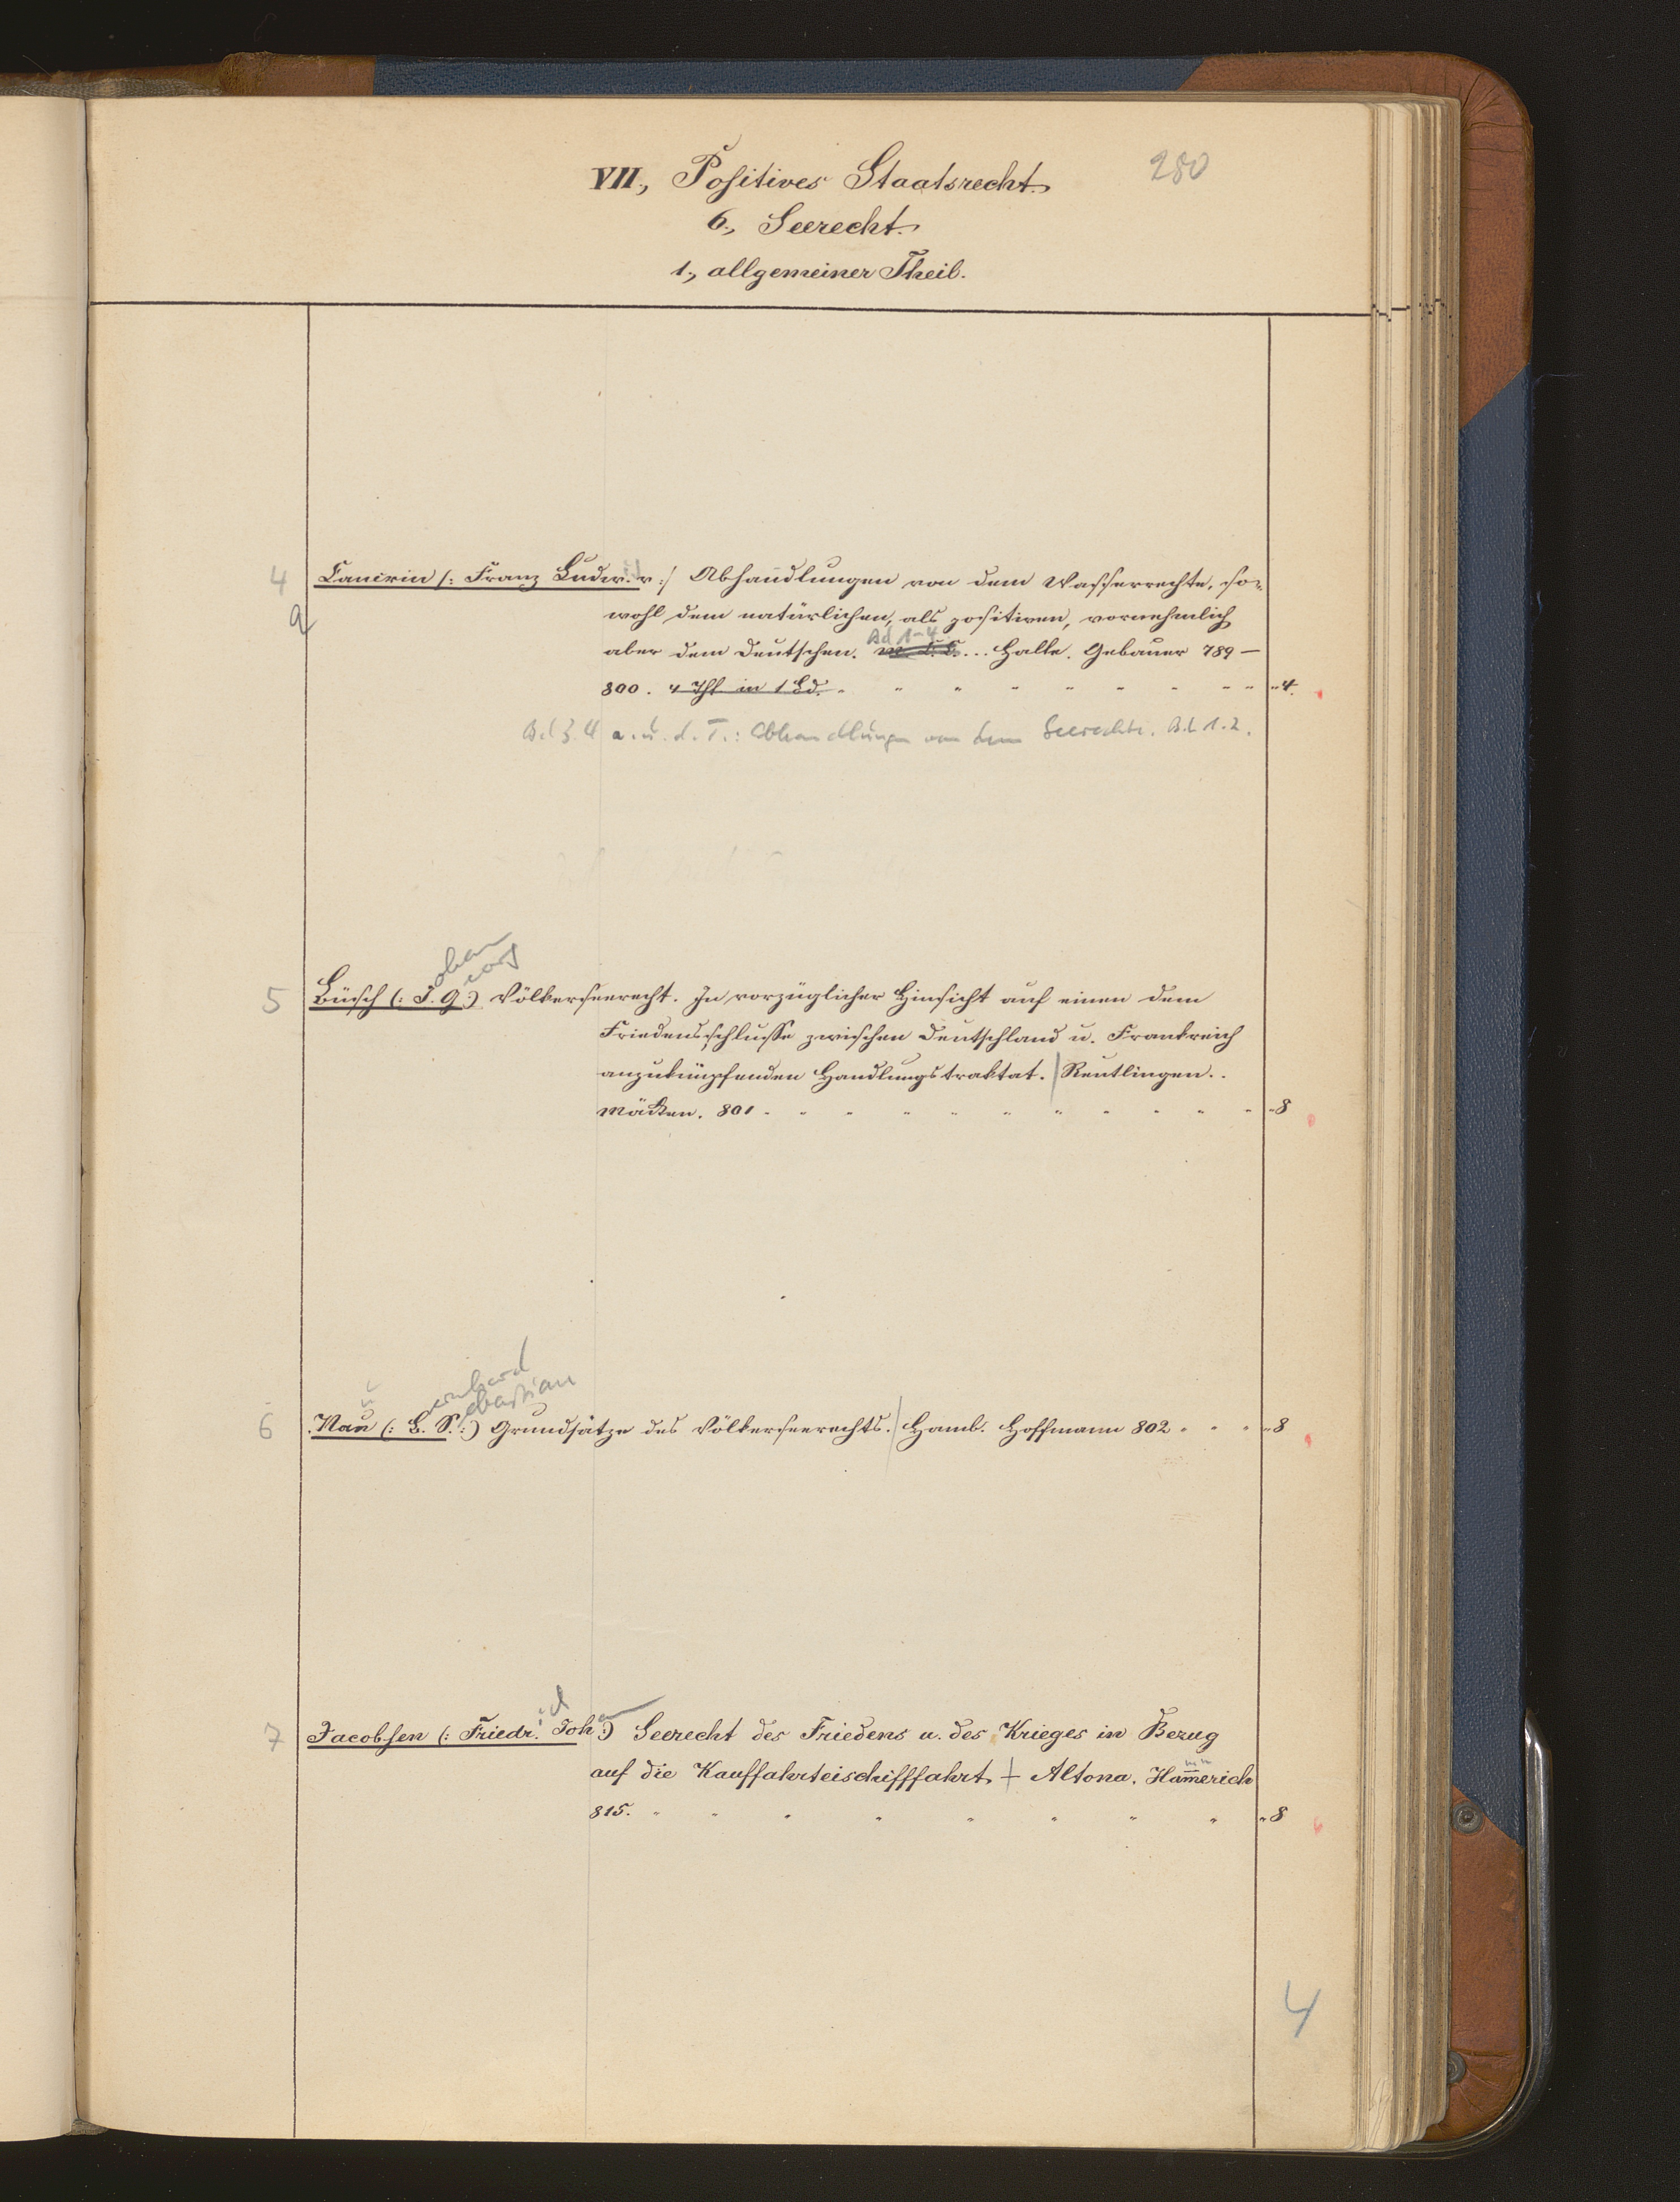 280
VII., Positives Staatsrecht.
6., Seerecht.
1., allgemeiner Theil.
4 Cancrin (: Franz Ludw. v :) Abhandlungen von dem Wasserrechte, so-
a
wohl dem natürlichen, als positiven, vornehmlich
Bd 1-4
aber dem Deutschen. Halle. Gebauer 789 –
800. 4 Thl in 1 Bd. " 4.
Bd 3.4 a. u. d. T.: Abhandlungen von dem Seerechte. Bd 1.2.
ohann
eorg
5 Büsch (: J. G :) Völkerseerecht. In vorzüglicher Hinsicht auf einen dem
Friedensschlusse zwischen Deutschland u. Frankreich
anzuknüpfenden Handlungstraktat. | Reutlingen..
Mäcken. 801 " 8
ernhard
ebastian
6 Nau (: B. S. :) Grundsätze des Völkerseerechts. | Hamb. Hoffmann 802 " 8
7 Jacobsen (: Friedr. Joh :) Seerecht des Friedens u. des Krieges in Bezug
auf die Kauffahrteischifffahrt. + Altona. Ham̅erich
815. " 8
4